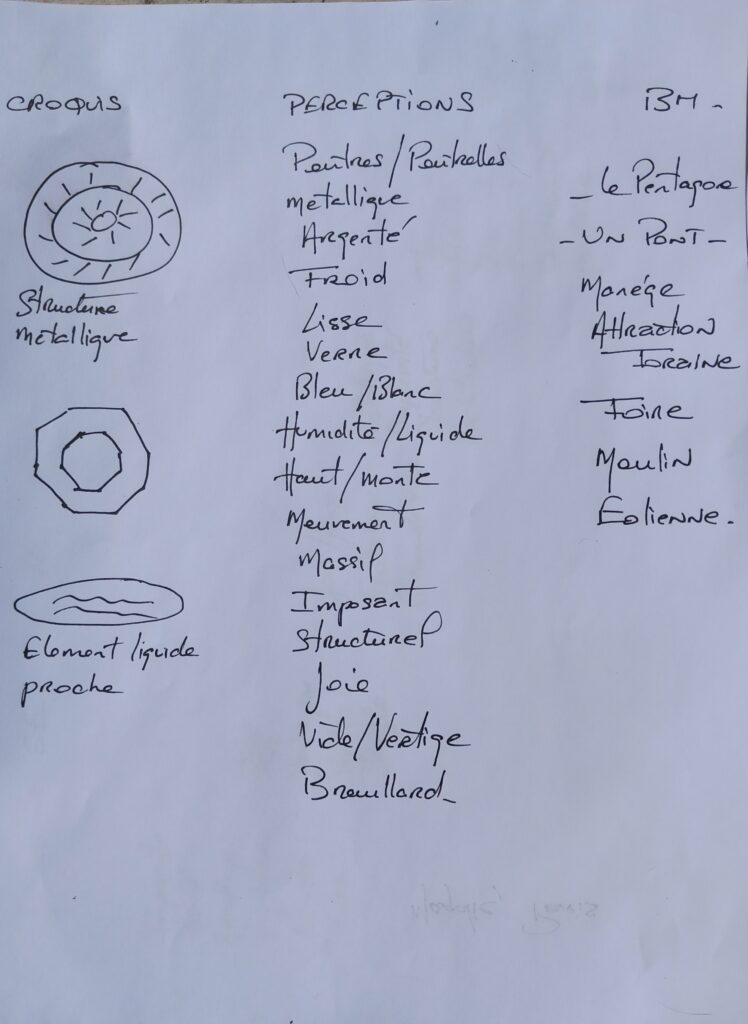 CROQUIS
Structure
métallique
Element liquide
proche
PERCEPTIONS
Poutres/Poutrelles
métallique
Argenté
Froid
Lisse
Verre
Bleu/Blanc
Humidité/Liquide
Haut/monte
Mouvement
Massif
Imposant
Structurel
Joie
Vide/Vertige
Brouillard_
IBM -
_ Le Pentagone
- UN PONT -
Manége
Attraction
Foraine
Foire
Moulin
Eolienne.